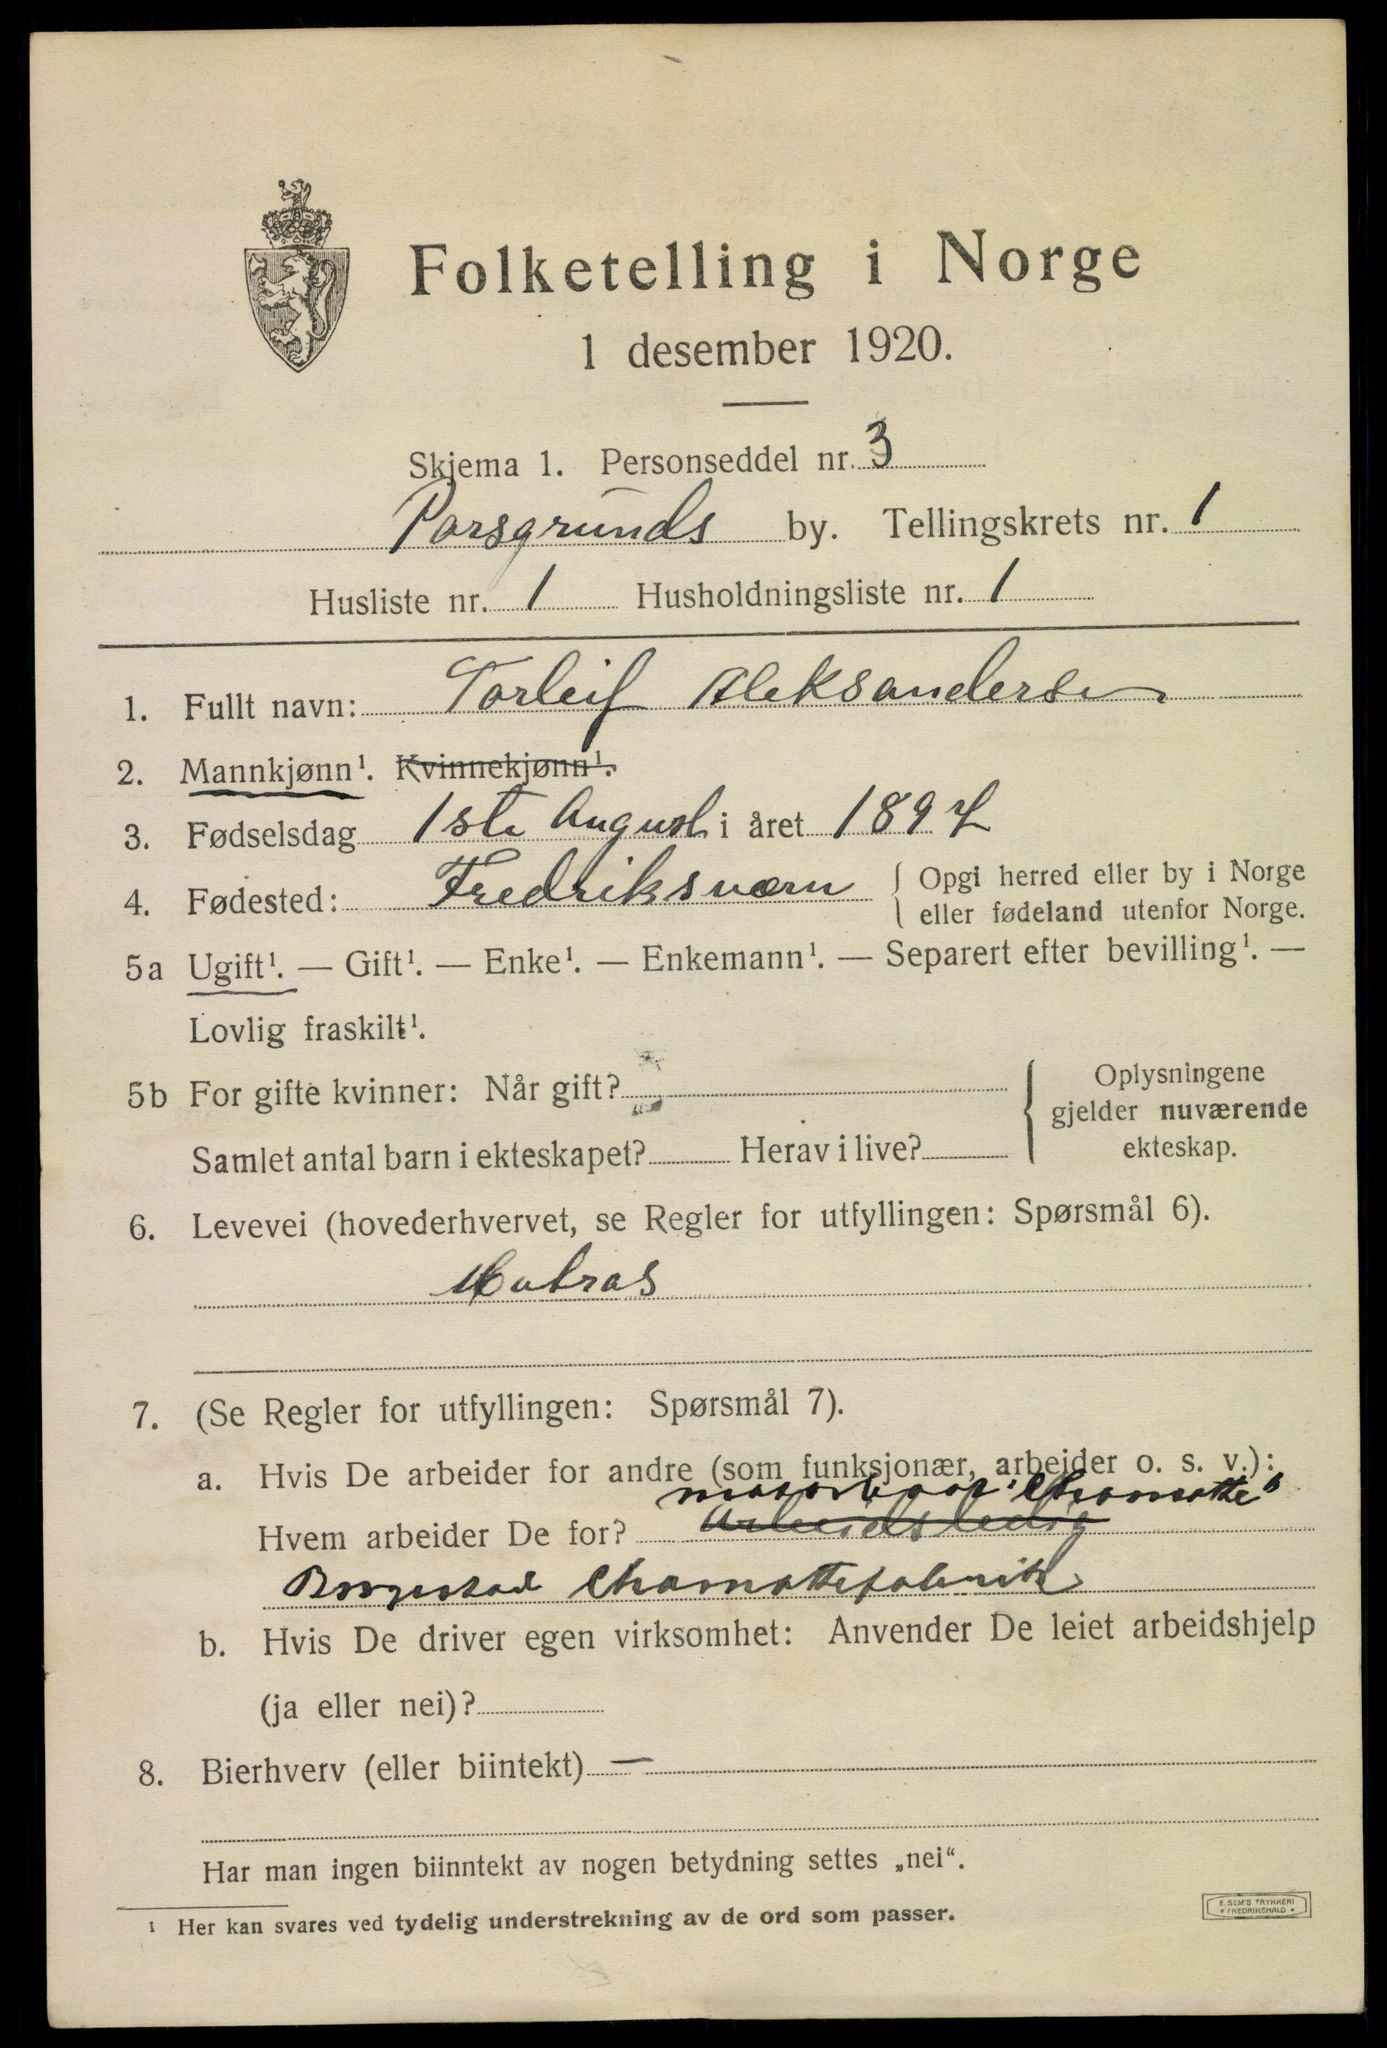 Folketelling i Norge
1 desember 1920.
Skjema 1. Personseddel nr. 3
Porsgrunds by. Tellingskrets nr. 1
Husliste nr. 1 Husholdningsliste nr. 1
1. Fullt navn: Torleif Aleksandersen
2. Mannkjønn¹. Kvinnekjønn¹.
3. Fødselsdag 1ste August i året 1897
4. Fødested: Fredriksværn { Opgi herred eller by i Norge
eller fødeland utenfor Norge.
5a Ugift¹. — Gift¹. — Enke¹. — Enkemann¹. — Separert efter bevilling¹. —
Lovlig fraskilt¹.
5b For gifte kvinner: Når gift?
Samlet antal barn i ekteskapet? Herav i live?
{ Oplysningene
gjelder nuværende
ekteskap.
6. Levevei (hovederhvervet, se Regler for utfyllingen: Spørsmål 6).
Matros
7. (Se Regler for utfyllingen: Spørsmål 7).
a. Hvis De arbeider for andre (som funksjonær, arbeider o. s. v.):
Chamotte
Hvem arbeider De for? Arbeidsledig
Borgestad Chamottefabrik
b. Hvis De driver egen virksomhet: Anvender De leiet arbeidshjelp
(ja eller nei)?
8. Bierhverv (eller biintekt) —
Har man ingen biinntekt av nogen betydning settes „nei“.
¹ Her kan svares ved tydelig understrekning av de ord som passer.
E. SEM'S TRYKKERI
* FREDRIKSHALD *